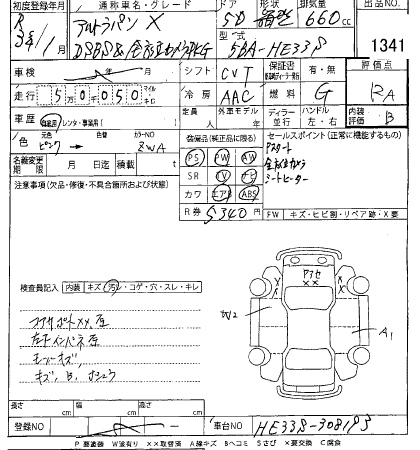 初度登録年月 通称車名・グレード ドア 形状 排気量 出品NO.
R 3年/1月 アルトラパン X 5D 660cc
DSBS& 全方位カメラPKG 型式 5BA-HE33S 1341
車検 シフト CVT 保証書 有・無 評価点
走行 5万0050 マイル キロ 冷房 AAC 燃料 G RA
車歴 自家用 レンタ・事業所( ) 定員 外車モデル 年 ディーラー 並行 ハンドル 左・右 内装 B
色 ピンク → カラーNO ZWA 装備品(純正品に限る) セールスポイント(正常に機能するもの)
PS PW AW Pスタート
名義変更期限 月 日迄 積載 t SR TV ナビ 全方位カメラ
注意事項(欠品・修復・不具合箇所および状態) カワ エアB ABS シートヒーター
R券 5340 FW キズ・ヒビ割・リペア跡・X要
Pアセ
XX
検査員記入 内装 キズ・汚レ・コゲ・穴・スレ・キレ
W2
A1
コアサポートXX, 歪
左インパネ歪
モールキズ,
キズ, B,
長さ cm 幅 cm 高さ cm
登録NO 車台NO HE33S-308193
P 要塗装 W塗有り XX取替済 A線キズ Bヘコミ Sさび X要交換 C腐食